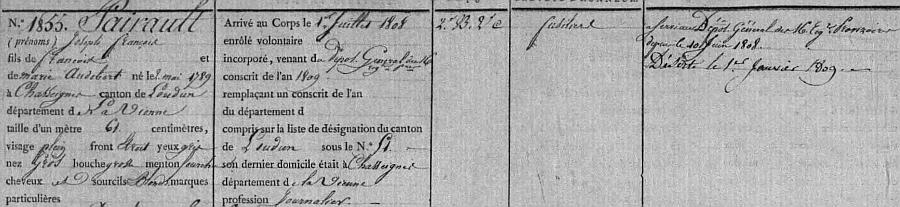 N.° 1855. Pairault
(prénoms) Joseph François
fils de François et
de marie Audebert né le 1. mai 1789
à Chasseignes canton de Loudun
département d La Vienne
taille d'un mètre 61 centimètres,
visage plein front étroit yeux gris
nez Gros bouche grosse menton fourchu
cheveux et sourcils Blonds marques
particulières
Arrivé au Corps le 1er Juillet 1808
enrôlé volontaire
incorporé, venant du Dépot Général des 16
conscrit de l'an 1809
remplaçant un conscrit de l'an
du département d
compris sur la liste de désignation du canton
de Loudun sous le N.° 51.
son dernier domicile était à Chasseignes
département d la Vienne
profession Journalier
2e B. 2e C
fusilier
a servi au Dépot Général des 16 Regts
depuis le 10 Juin 1808.
Déserté le 1er Janvier 1809.